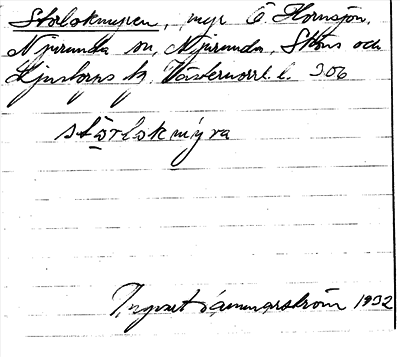 Storloksmyren, myr Ö. Hornsjön,
Njurunda sn, Njurunda, Sköns och
Ljustorps tg. Västernorrl. l. 306
stärlokmýra
Yngvar Hammarström 1932